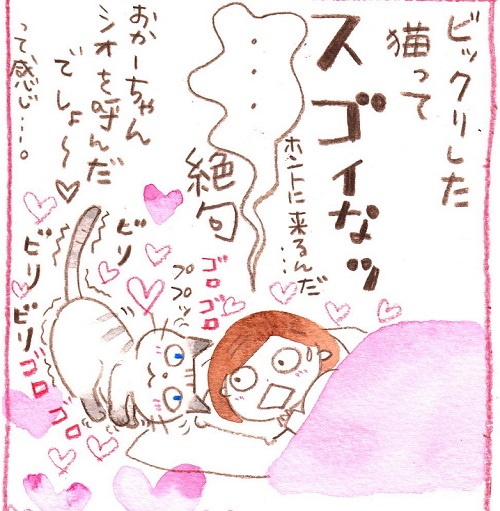 ビックリした
猫って
スゴイなッ
ホントに来るんだ…
・・・
絶句
おかーちゃん
シオを呼んだ
でしょ〜♡
って感じ…。
ビリ
ビリ
ビリ
ゴロ
ゴロ
プププッ
ゴロ
ゴロ